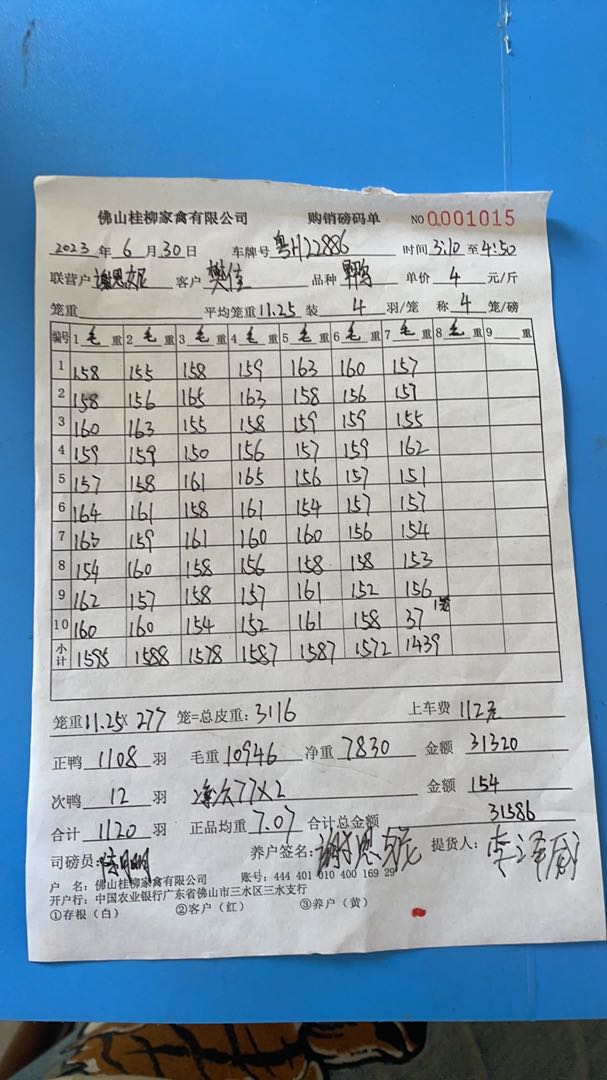 佛山桂柳家禽有限公司 购销磅码单 NO 0001015
2023 年 6 月 30 日 车牌号 粤H22886 时间 3:10 至 4:50
联营户 谢恩妮 客户 樊佳 品种 鸭 单价 4 元/斤
笼重 平均笼重 11.25 装 4 羽/笼 称 4 笼/磅
编号 1 毛 重 2 毛 重 3 毛 重 4 毛 重 5 毛 重 6 毛 重 7 毛 重 8 毛 重 9 重
1 158 155 158 159 163 160 157
2 158 156 165 163 158 156 157
3 160 163 155 158 159 159 155
4 159 159 150 156 157 159 162
5 157 158 161 165 156 157 151
6 164 161 158 161 154 157 157
7 163 159 161 160 160 156 154
8 154 160 158 156 158 158 153
9 162 157 158 157 161 152 156
10 160 160 154 152 161 158 37 1笼
小计 1595 1588 1578 1587 1587 1572 1439
笼重 11.25× 277 笼=总皮重: 3116 上车费 112元
正鸭 1108 羽 毛重 10946 净重 7830 金额 31320
次鸭 12 羽 净次77×2 金额 154
合计 1120 羽 正品均重 7.07 合计总金额 31586
司磅员: 养户签名: 谢恩妮 提货人: 李泽威
户 名: 佛山桂柳家禽有限公司 账号: 444 401 010 400 169 29
开户行: 中国农业银行广东省佛山市三水区三水支行
①存根(白) ②客户(红) ③养户(黄)